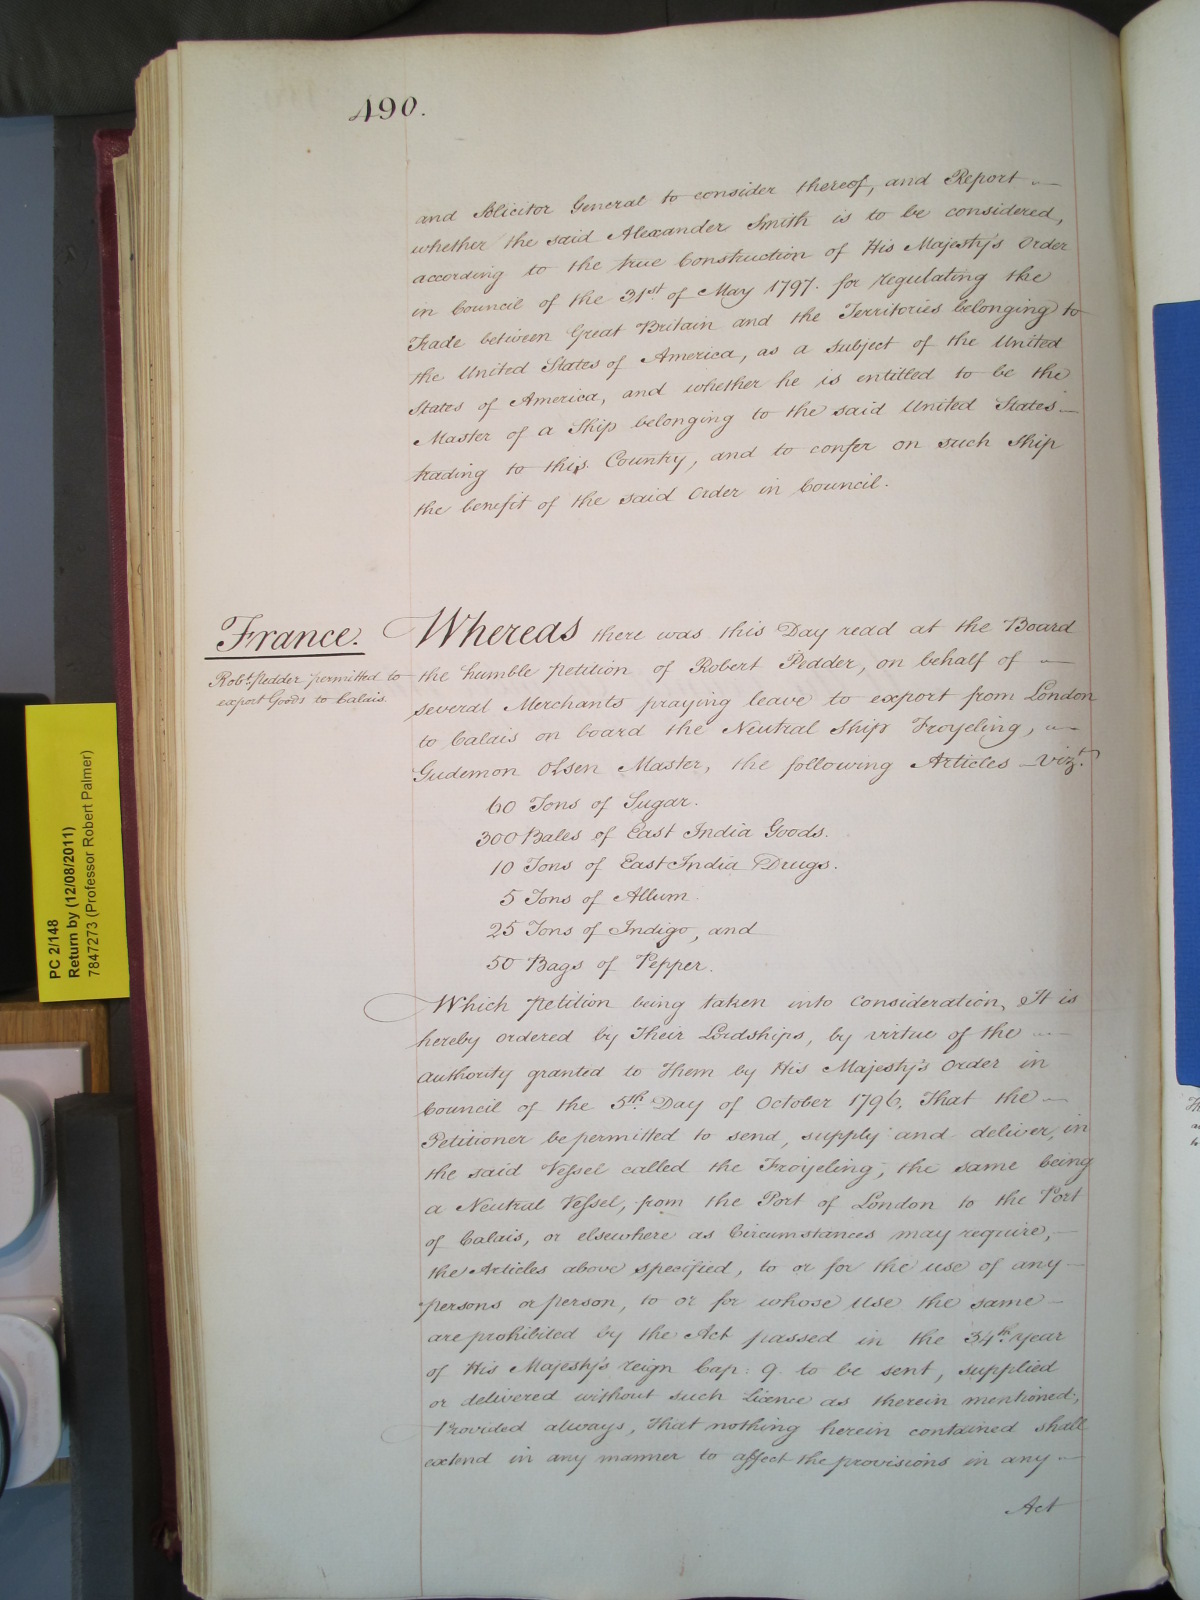 490.
and Solicitor General to consider thereof, and Report
whether the said Alexander Smith is to be considered,
according to the true Construction of His Majesty's Order
in Council of the 31st of May 1797. for regulating the
Trade between Great Britain and the Territories belonging to
the United States of America, as a Subject of the United
States of America, and whether he is entitled to be the
Master of a Ship belonging to the said United States
trading to this Country, and to confer on such Ship
the benefit of the said Order in Council.
France.
Robt. Pedder permitted to
export Goods to Calais.
Whereas there was this Day read at the Board
the humble Petition of Robert Pedder, on behalf of
several Merchants praying leave to export from London
to Calais on board the Neutral Ship Froyeling,
Gudemon Olsen Master, the following Articles Vizt.
60 Tons of Sugar.
300 Bales of East India Goods.
10 Tons of East India Drugs.
5 Tons of Allum.
25 Tons of Indigo, and
50 Bags of Pepper.
Which Petition being taken into Consideration, It is
hereby ordered by Their Lordships, by virtue of the
authority granted to Them by His Majesty's Order in
Council of the 5th. Day of October 1796. That the
Petitioner be permitted to send, supply and deliver, in
the said Vessel called the Froiyeling, the same being
a Neutral Vessel, from the Port of London to the Port
of Calais, or elsewhere as Circumstances may require,
the Articles above specified, to or for the use of any
persons or person, to or for whose Use the same
are prohibited by the Act passed in the 34th. Year
of His Majesty's reign Cap: 9. to be sent, supplied
or delivered without such Licence as therein mentioned;
Provided always, That nothing herein contained shall
extend in any manner to affect the provisions in any
Act
PC 2/148
Return by (12/08/2011)
7847273 (Professor Robert Palmer)